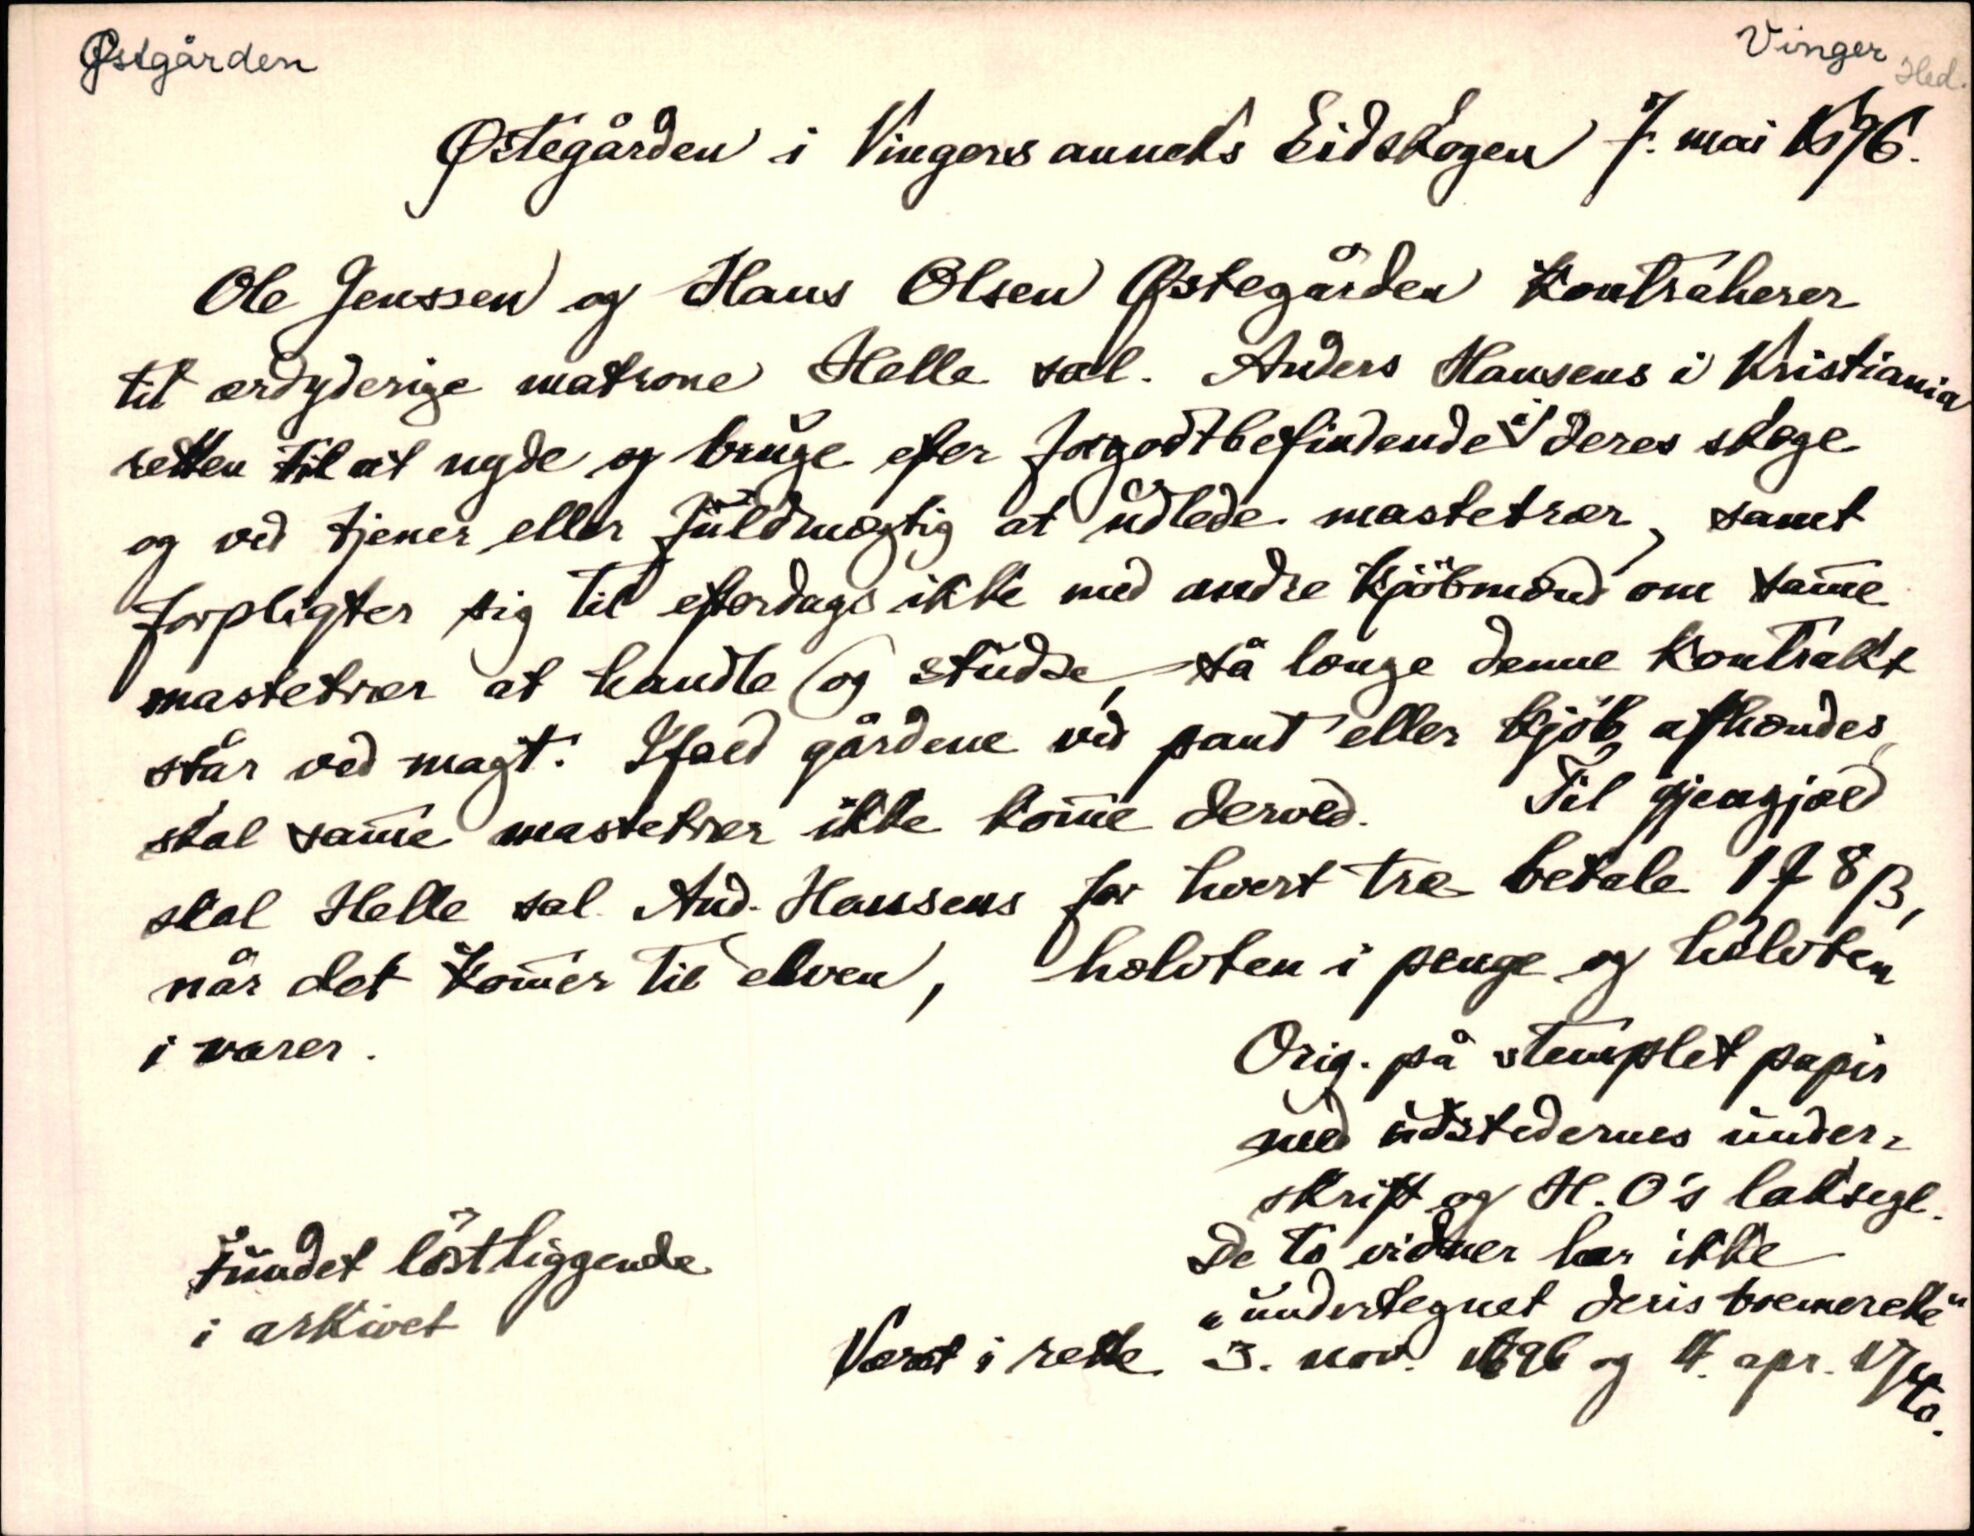 Østgården
Vinger Hed.
Østegården i Vingers anneks Eidskogen 7. mai 1696.
Ole Jenssen og Hans Olsen Østegården kontraherer
til ærdyderige matrone Helle sal. Anders Hansens i Kristiania
retten til at nyde og bruge efter forgodtbefindende i deres skoge
og ved tjener eller fuldmægtig at udlede mastetrær, samt
forpligter sig til efterdags ikke med andre kjöbmænd om same
mastetrær at handle og studse, så længe denne kontrakt
står ved magt. Ifald gårdene ved pant eller kjöb afhændes,
skal same mastetrær ikke kome derved. Til gjengjæld
skal Helle sal. And. Hansens for hvert træ betale 1 8 ß,
når det komer til elven, halvten i penge og halvten
i varer.
Orig. på stemplet papir
med udstedernes under-
skrift og H. O's laksegl.
De to vidner har ikke
"undertegnet deris boemerke"
fundet löstliggende
i arkivet
Været i rette 3. nov. 1696 og 4. apr.